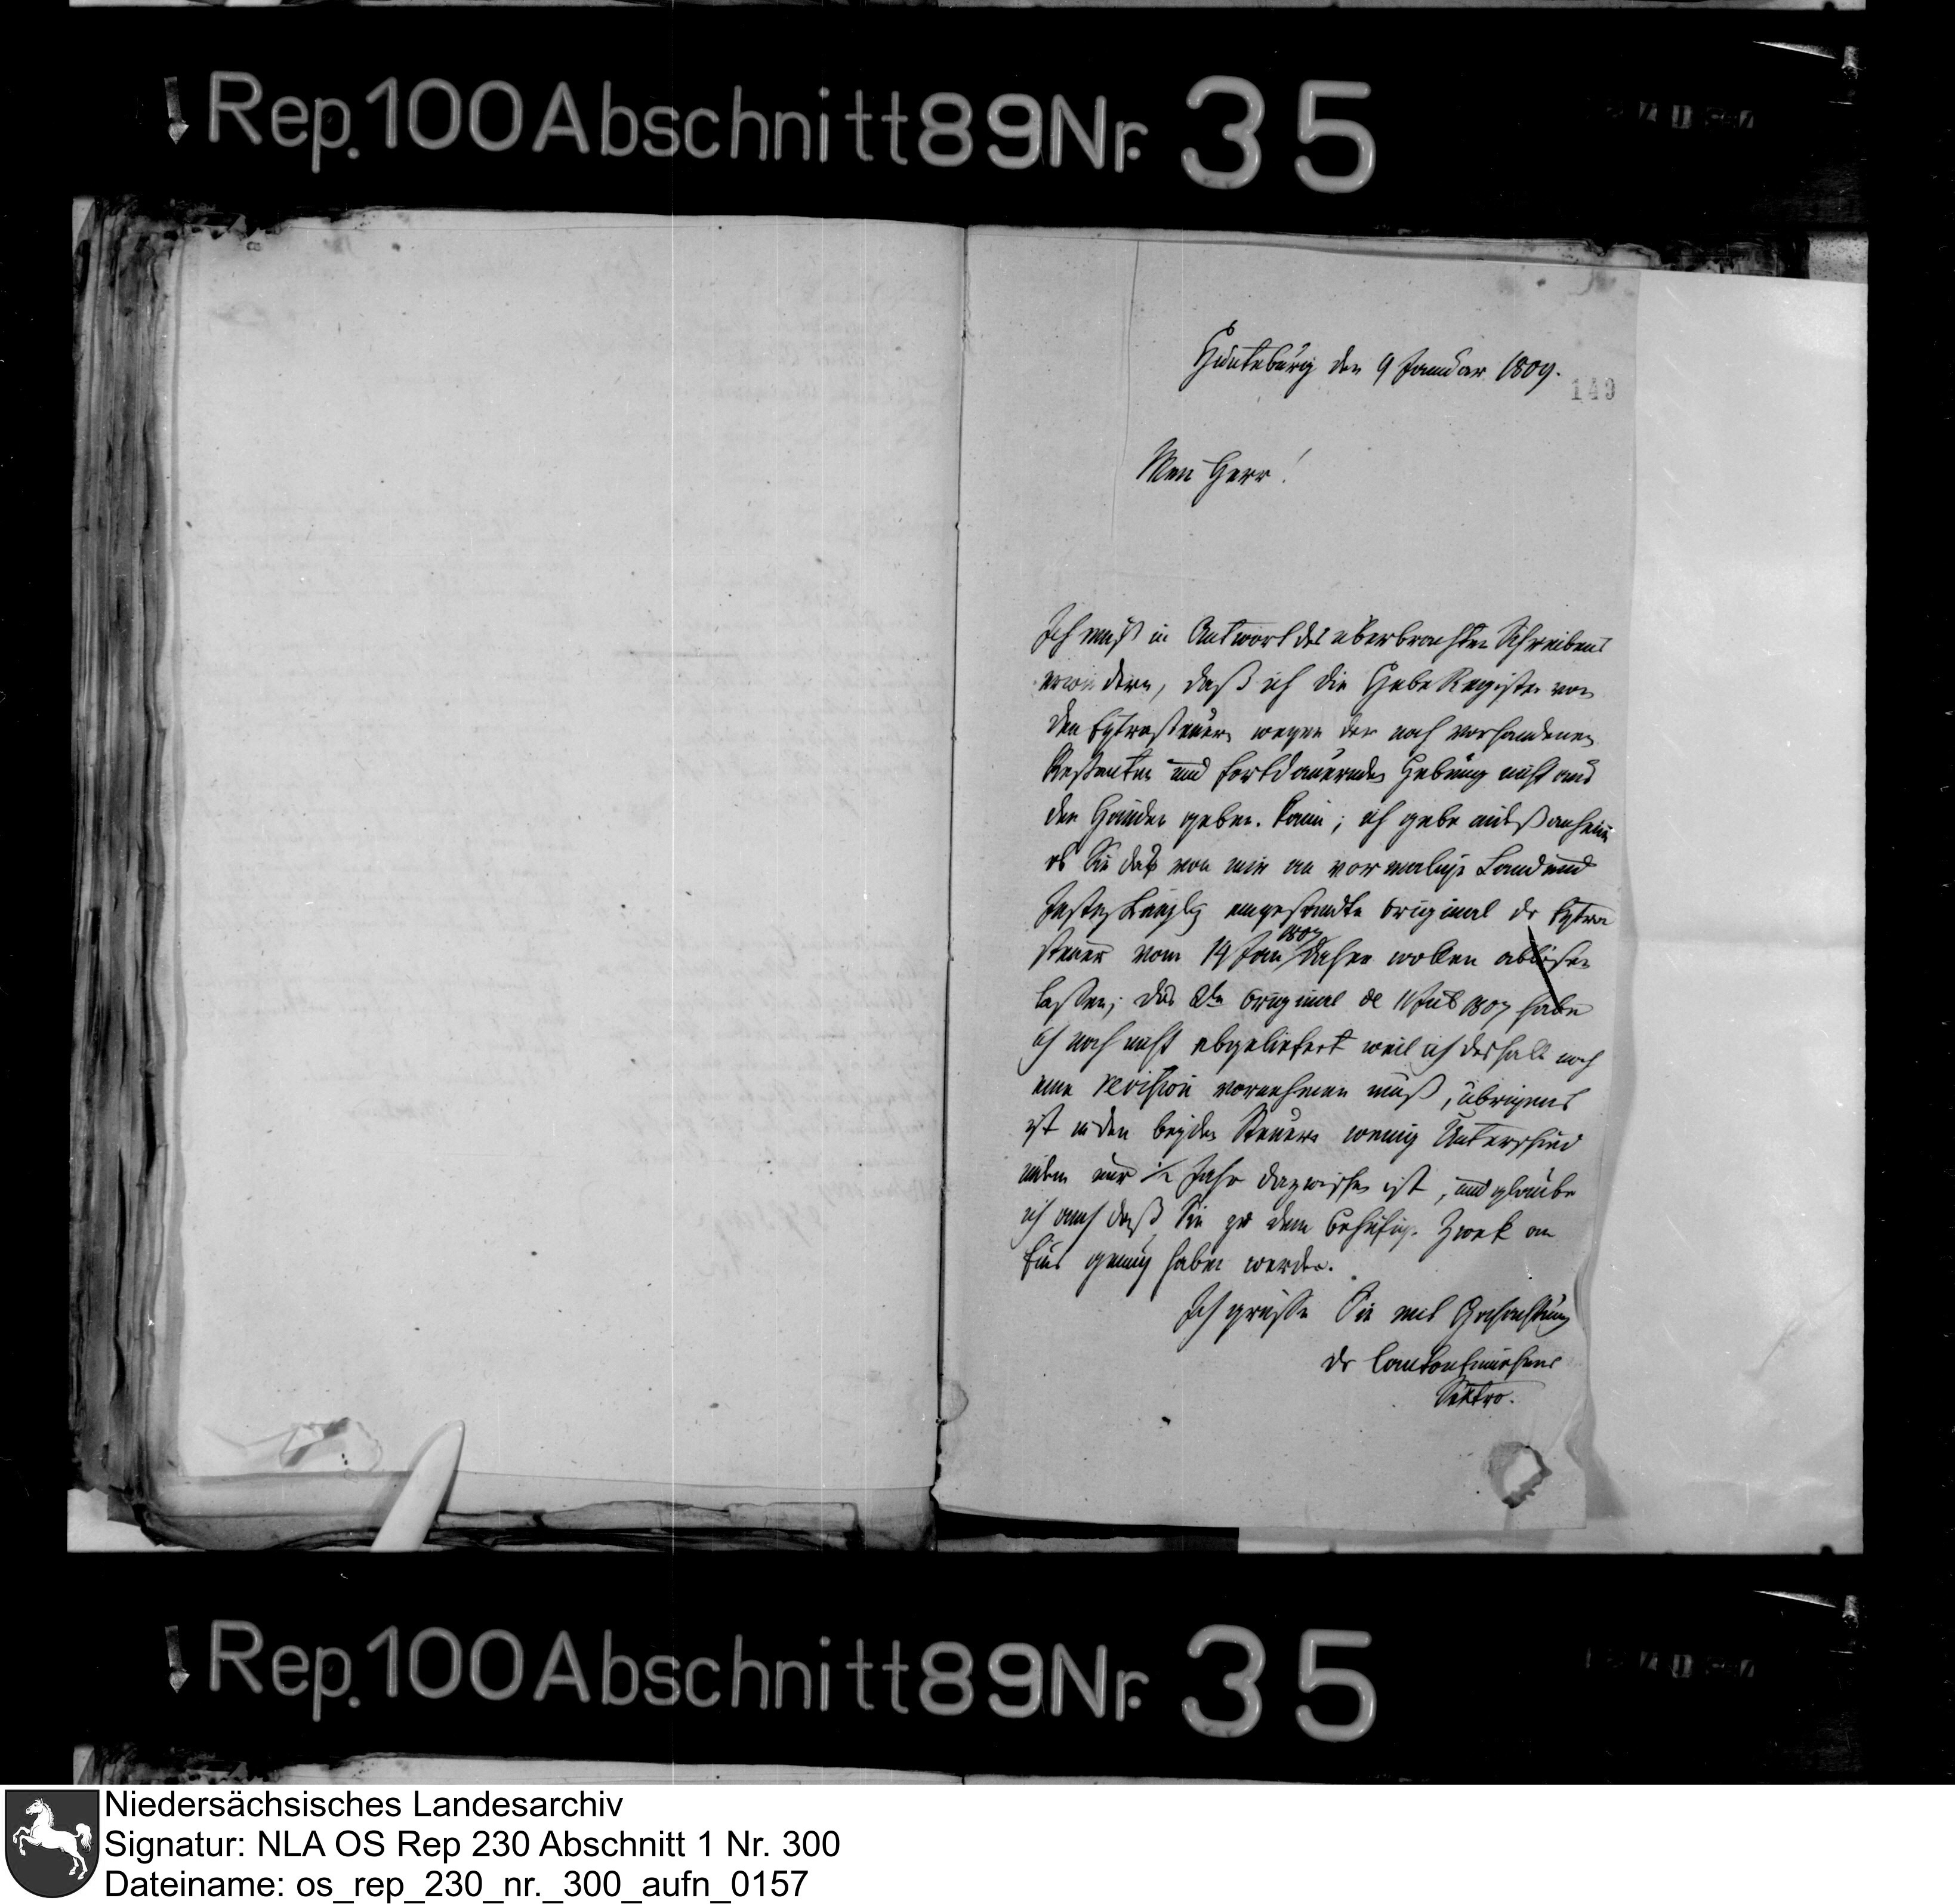 Rep. 100 Abschnitt 89 Nr. 35
Hunteburg den 9 Januar 1809.
149
Mein Herr!
Ich muß in Antwort des überbrachten Schreibens
erwiedern, daß ich die Hebe Register von
den Extrasteuern wegen der noch vorhandenen
Restanten und fortdauernden Hebung nicht aus
den Händen geben kann; ich gebe anheim
ob Sie das von mir an vormalige Land und
Justiz Canzley eingesandte Original der Extra
steuer vom 14 Jan 1807 daher wollen
laßen; das 2te Original de 11 Jul 1807 habe
ich noch nicht abgeliefert weil ich deshalb noch
eine revision vornehmen muß, übrigens
ist in den beyden Steuern wenig Unterschied
indem nur 1/2 Jahr dazwischen ist, und glaube
ich auch daß Sie zu dem Zwek an
Eins genug haben werden.
Ich grüße Sie mit Hochachtung
der
Rep. 100 Abschnitt 89 Nr. 35
Niedersächsisches Landesarchiv
Signatur: NLA OS Rep 230 Abschnitt 1 Nr. 300
Dateiname: os_rep_230_nr._300_aufn_0157